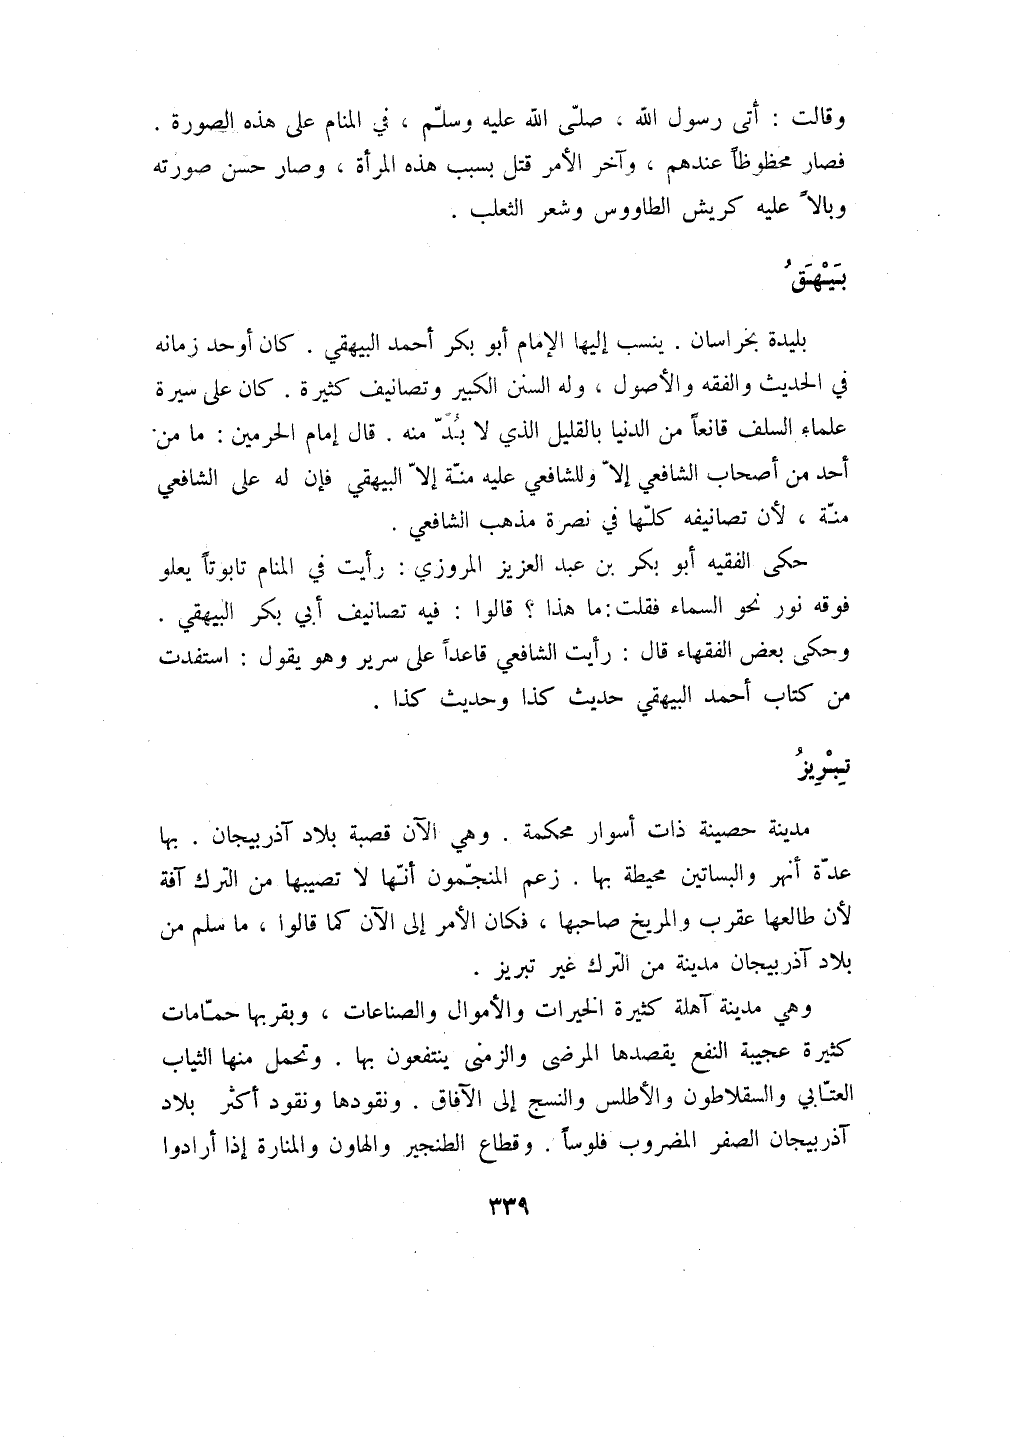 وقالت : أتى رسول الله ، صلّى الله عليه وسلّم ، في المنام على هذه الصورة .
فصار محظوظاً عندهم ، وآخر الأمر قتل بسبب هذه المرأة ، وصار حسن صورته
وبالاً عليه كريش الطاووس وشعر الثعلب .
بَيْهَقُ
بليدة بخراسان . ينسب إليها الإمام أبو بكر أحمد البيهقي . كان أوحد زمانه
في الحديث والفقه والأصول ، وله السنن الكبير وتصانيف كثيرة . كان على سيرة
علماء السلف قانعاً من الدنيا بالقليل الذي لا بُدّ منه . قال إمام الحرمين : ما من
أحد من أصحاب الشافعي إلاّ وللشافعي عليه منّة إلاّ البيهقي فإن له على الشافعي
منّة ، لأن تصانيفه كلّها في نصرة مذهب الشافعي .
حكى الفقيه أبو بكر بن عبد العزيز المروزي : رأيت في المنام تابوتاً يعلو
فوقه نور نحو السماء فقلت : ما هذا ؟ قالوا : فيه تصانيف أبي بكر البيهقي .
وحكى بعض الفقهاء قال : رأيت الشافعي قاعداً على سرير وهو يقول : استفدت
من كتاب أحمد البيهقي حديث كذا وحديث كذا .
تِبْرِيزُ
مدينة حصينة ذات أسوار محكمة . وهي الآن قصبة بلاد آذربيجان . بها
عدّة أنهر والبساتين محيطة بها . زعم المنجّمون أنّها لا تصيبها من الترك آفة
لأن طالعها عقرب والمريخ صاحبها ، فكان الأمر إلى الآن كما قالوا ، ما سلم من
بلاد آذربيجان مدينة من الترك غير تبريز .
وهي مدينة آهلة كثيرة الخيرات والأموال والصناعات ، وبقربها حمّامات
كثيرة عجيبة النفع يقصدها المرضى والزمنى ينتفعون بها . وتحمل منها الثياب
العتّابي والسقلاطون والأطلس والنسج إلى الآفاق . ونقودها ونقود أكثر بلاد
آذربيجان الصفر المضروب فلوساً . وقطاع الطنجير والهاون والمنارة إذا أرادوا
٣٣٩